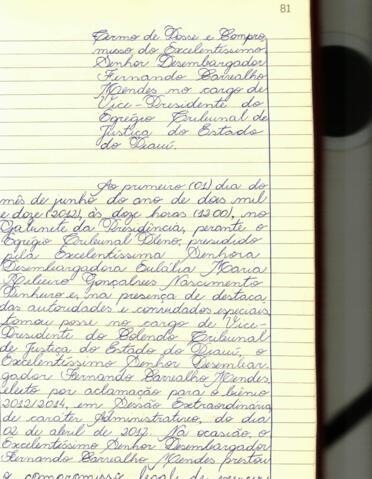 81
Termo de Posse e Compro
misso do Excelentíssimo
Senhor Desembargador
Fernando Carvalho
Mendes no cargo de
Vice-Presidente do
Egrégio Tribunal de
Justiça do Estado
do Piauí.
Ao primeiro (01) dia do
mês de junho do ano de dois mil
e doze (2012), às doze horas (12:00), no
Gabinete da Presidência, perante o
Egrégio Tribunal Pleno, presidido
pela Excelentíssima Senhora
Desembargadora Eulália Maria
Ribeiro Gonçalves Nascimento
Pinheiro e, na presença de destaca
das autoridades e convidados especiais,
tomou posse no cargo de Vice-
Presidente do Colendo Tribunal
de Justiça do Estado do Piauí, o
Excelentíssimo Senhor Desembar
gador Fernando Carvalho Mendes,
eleito por aclamação para o biênio
2012/2014, em Sessão Extraordinária
de caráter Administrativo, do dia
02 de abril de 2012. Na ocasião, o
Excelentíssimo Senhor Desembargador
Fernando Carvalho Mendes prestou
o compromisso legal de